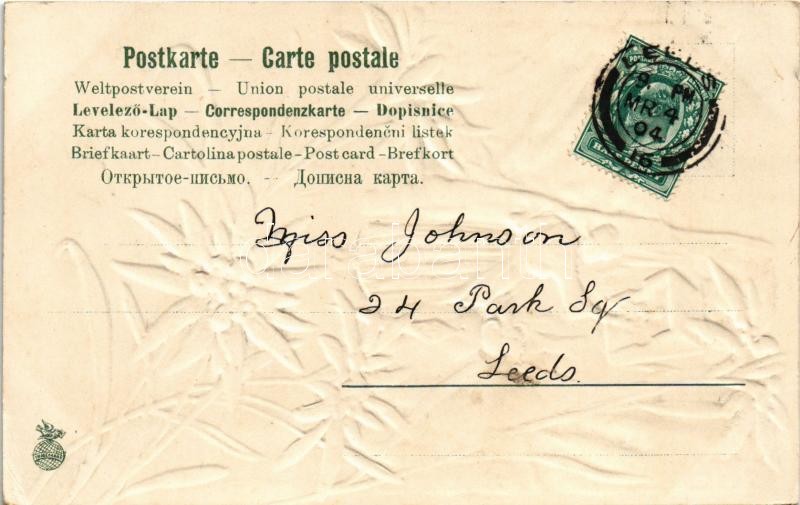 Postkarte — Carte postale
Weltpostverein — Union postale universelle
Levelező-Lap — Correspondenzkarte — Dopisnice
Karta korespondencyjna - Korespondenční listek
Briefkaart - Cartolina postale - Post card - Brefkort
Открытое-письмо. -- Дописна карта.
LEEDS
9 PM
MR 4
04
16
Miss Johnson
24 Park Sq
Leeds.